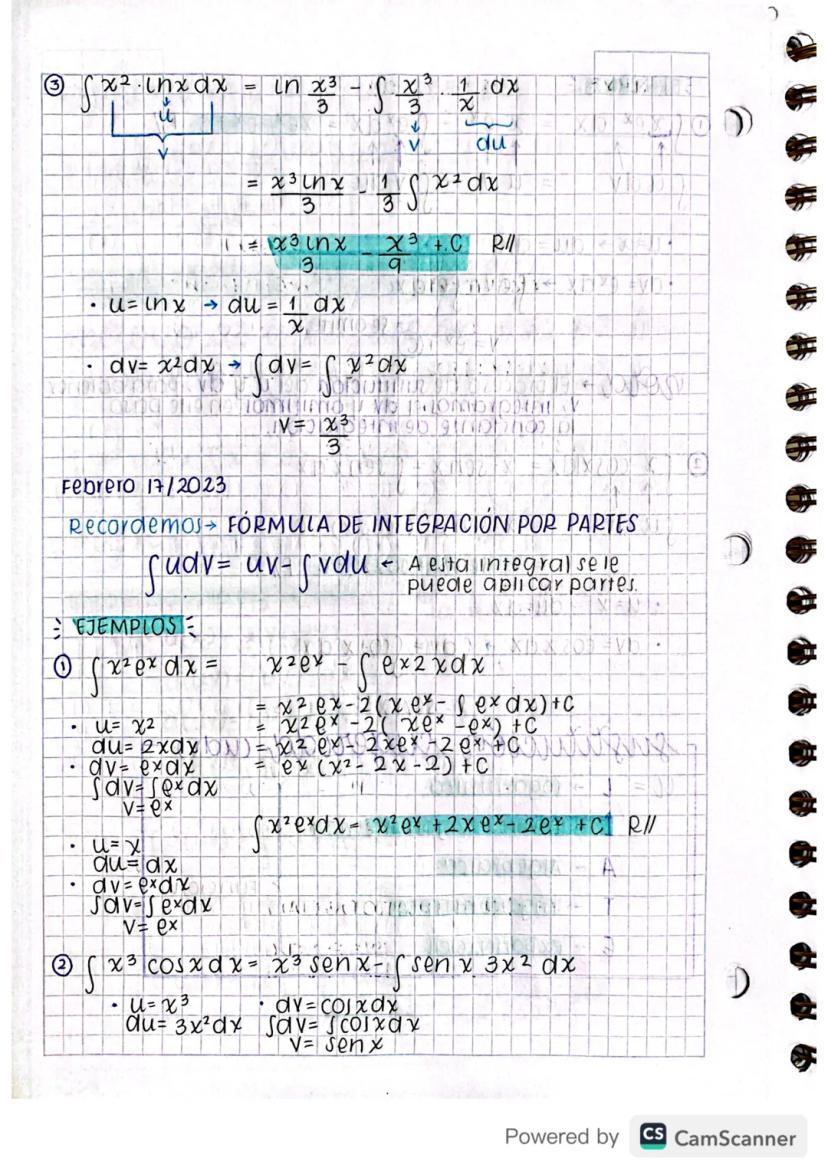 ③ ∫ x² · lnx dx = ln x³/3 - ∫ x³/3 · 1/x dx
u v du
v
= x³ lnx/3 - 1/3 ∫ x² dx
= x³ lnx/3 - x³/9 + C R//
· u = lnx → du = 1/x dx
· dv = x²dx → ∫dv = ∫ x²dx
v = x³/3
Febrero 17/2023
Recordemos → FÓRMULA DE INTEGRACIÓN POR PARTES
∫udv = uv - ∫vdu ← A esta integral se le
puede aplicar partes.
EJEMPLOS
① ∫ x²eˣ dx = x²eˣ - ∫ eˣ2xdx
= x² eˣ - 2(x eˣ - ∫ eˣ dx) + C
· u = x² = x²eˣ - 2( xeˣ - eˣ) + C
du = 2xdx = x² eˣ - 2xeˣ - 2eˣ + C
· dv = eˣdx = eˣ (x² - 2x - 2) + C
∫dv = ∫eˣdx
v = eˣ
∫x²eˣdx = x²eˣ + 2xeˣ - 2eˣ + C R//
· u = x
du = dx
· dv = eˣdx
∫dv = ∫eˣdx
v = eˣ
② ∫ x³ cosx dx = x³ sen x - ∫ sen x 3x² dx
· u = x³ · dv = cosxdx
du = 3x²dx ∫dv = ∫cosxdx
v = sen x
Powered by CS CamScanner